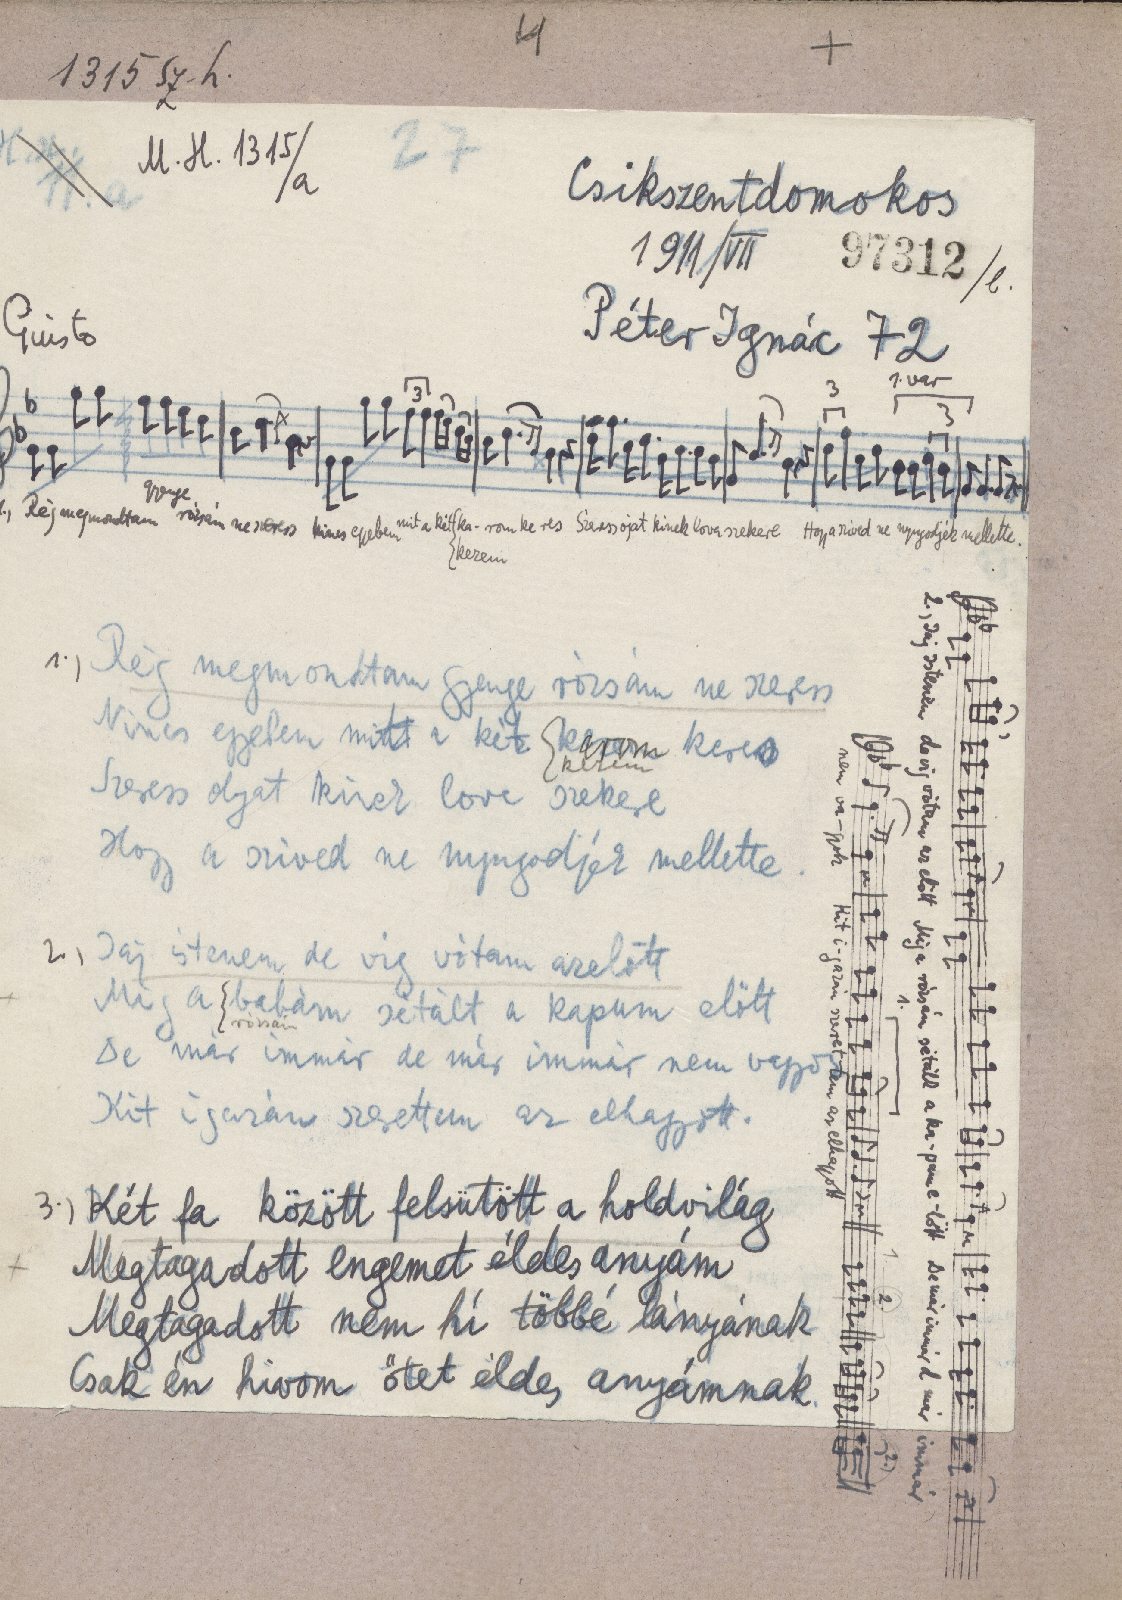 4 +
1315 Sz. h.
M. H. 1315/a
27
11. a
Csikszentdomokos
1911/VII
97312 /b.
Péter Ignác 72
Giusto
3
3
1. var
3
1., Rég megmondtam gyenge rózsám ne szeress nincs egyebem mit a két {ka-rom ke res Szeress ojat kinek lova szekere Hogy a szived ne nyugodjék mellette.
{kezem
1., Rég megmondtam gyenge rózsám ne szeress
Nincs egyebem mit a két {karom keres
kezem
Szeress ojat kinek lova szekere
Hogy a szived ne nyugodjék mellette.
2., Jaj istenem de vig vótam azelőtt
Mig a {babám sétált a kapum előtt
rózsám
De már immár de már immár nem vagyok
Kit igazán szerettem az elhagyott.
3., Két fa között felsütött a holdvilág
Megtagadott engemet éldes anyám
Megtagadott nem hí többé lányának
Csak én hivom őtet éldes anyámnak.
2., Jaj istenem de vig vótam az előtt Mig a rózsám sétált a ka-pum e-lőtt De már immár d már immár
nem va-gyok Kit i-gazán szeret-tem az elhagyott
1.
1
2
2.)